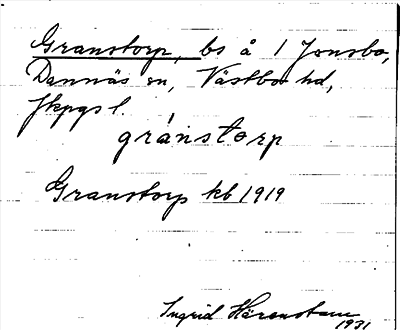 Granstorp, bs å 1 Jonsbo,
Dannäs sn, Västbo hd,
Jkpgs l.
gránstorp
Granstorp kb 1919
Ingrid Härenstam
1931